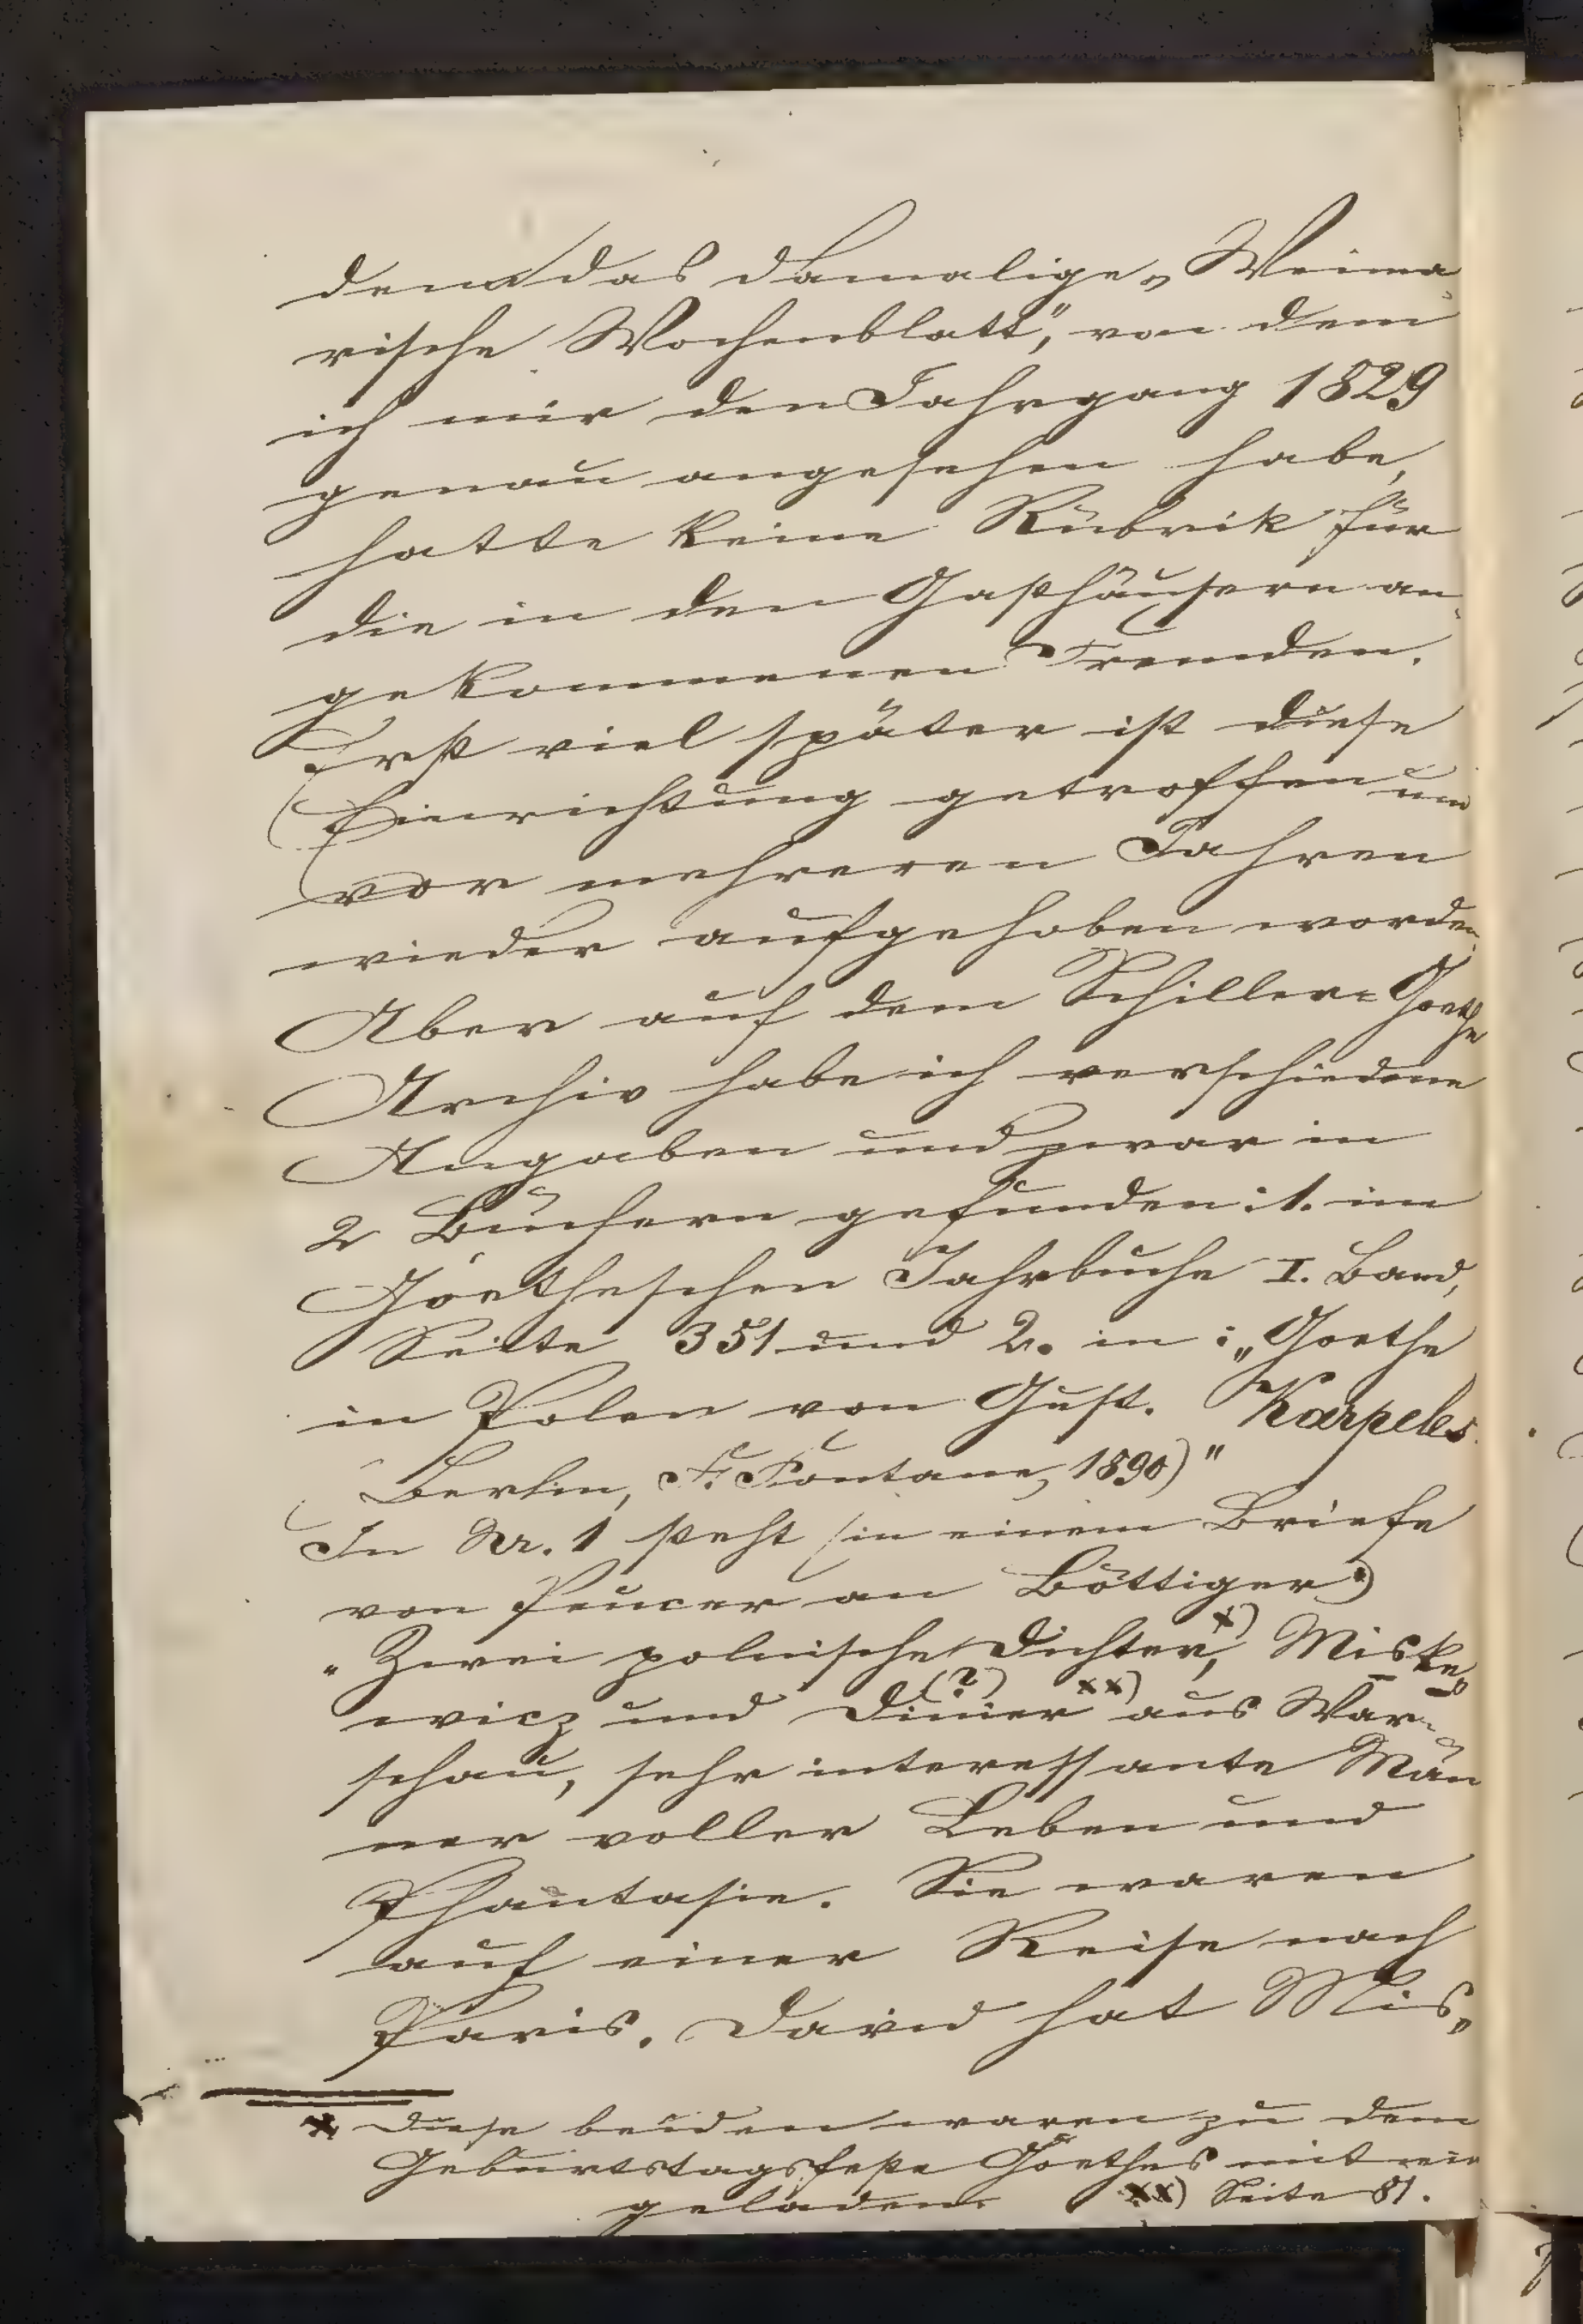 denn das damalige „Weima-
rische Wochenblatt“, von dem
ich mir den Jahrgang 1829
genau angesehen habe,
hatte keine Rubrik für
die in den Gasthäusern an-
gekommenen Fremden.
Erst viel später ist diese
Einrichtung getroffen und
vor mehreren Jahren
wieder aufgehoben worden.
Aber auf dem Schiller=Goethe
Archiv habe ich verschiedene
Angaben und zwar in
2 Büchern gefunden: 1. im
Goetheschen Jahrbuche I. Band,
Seite 351 und 2. in: „Goethe
in Polen von Gust. Karpeles
Berlin, F. Fontane, 1890)“
In Nr. 1 steht (in einem Briefe
von Peucer an Böttiger:)
„Zwei polnische Dichter, x) Miske-
wicz und Dinier (?) xx) aus War-
schau, sehr interessante Män
ner voller Leben und
Phantasie. Sie waren
auf einer Reise nach
Paris. David hat Mis-
x, Diese beiden waren zu dem
Geburtstagsfeste Goethes mit ein
geladen. xx) Seite 81.